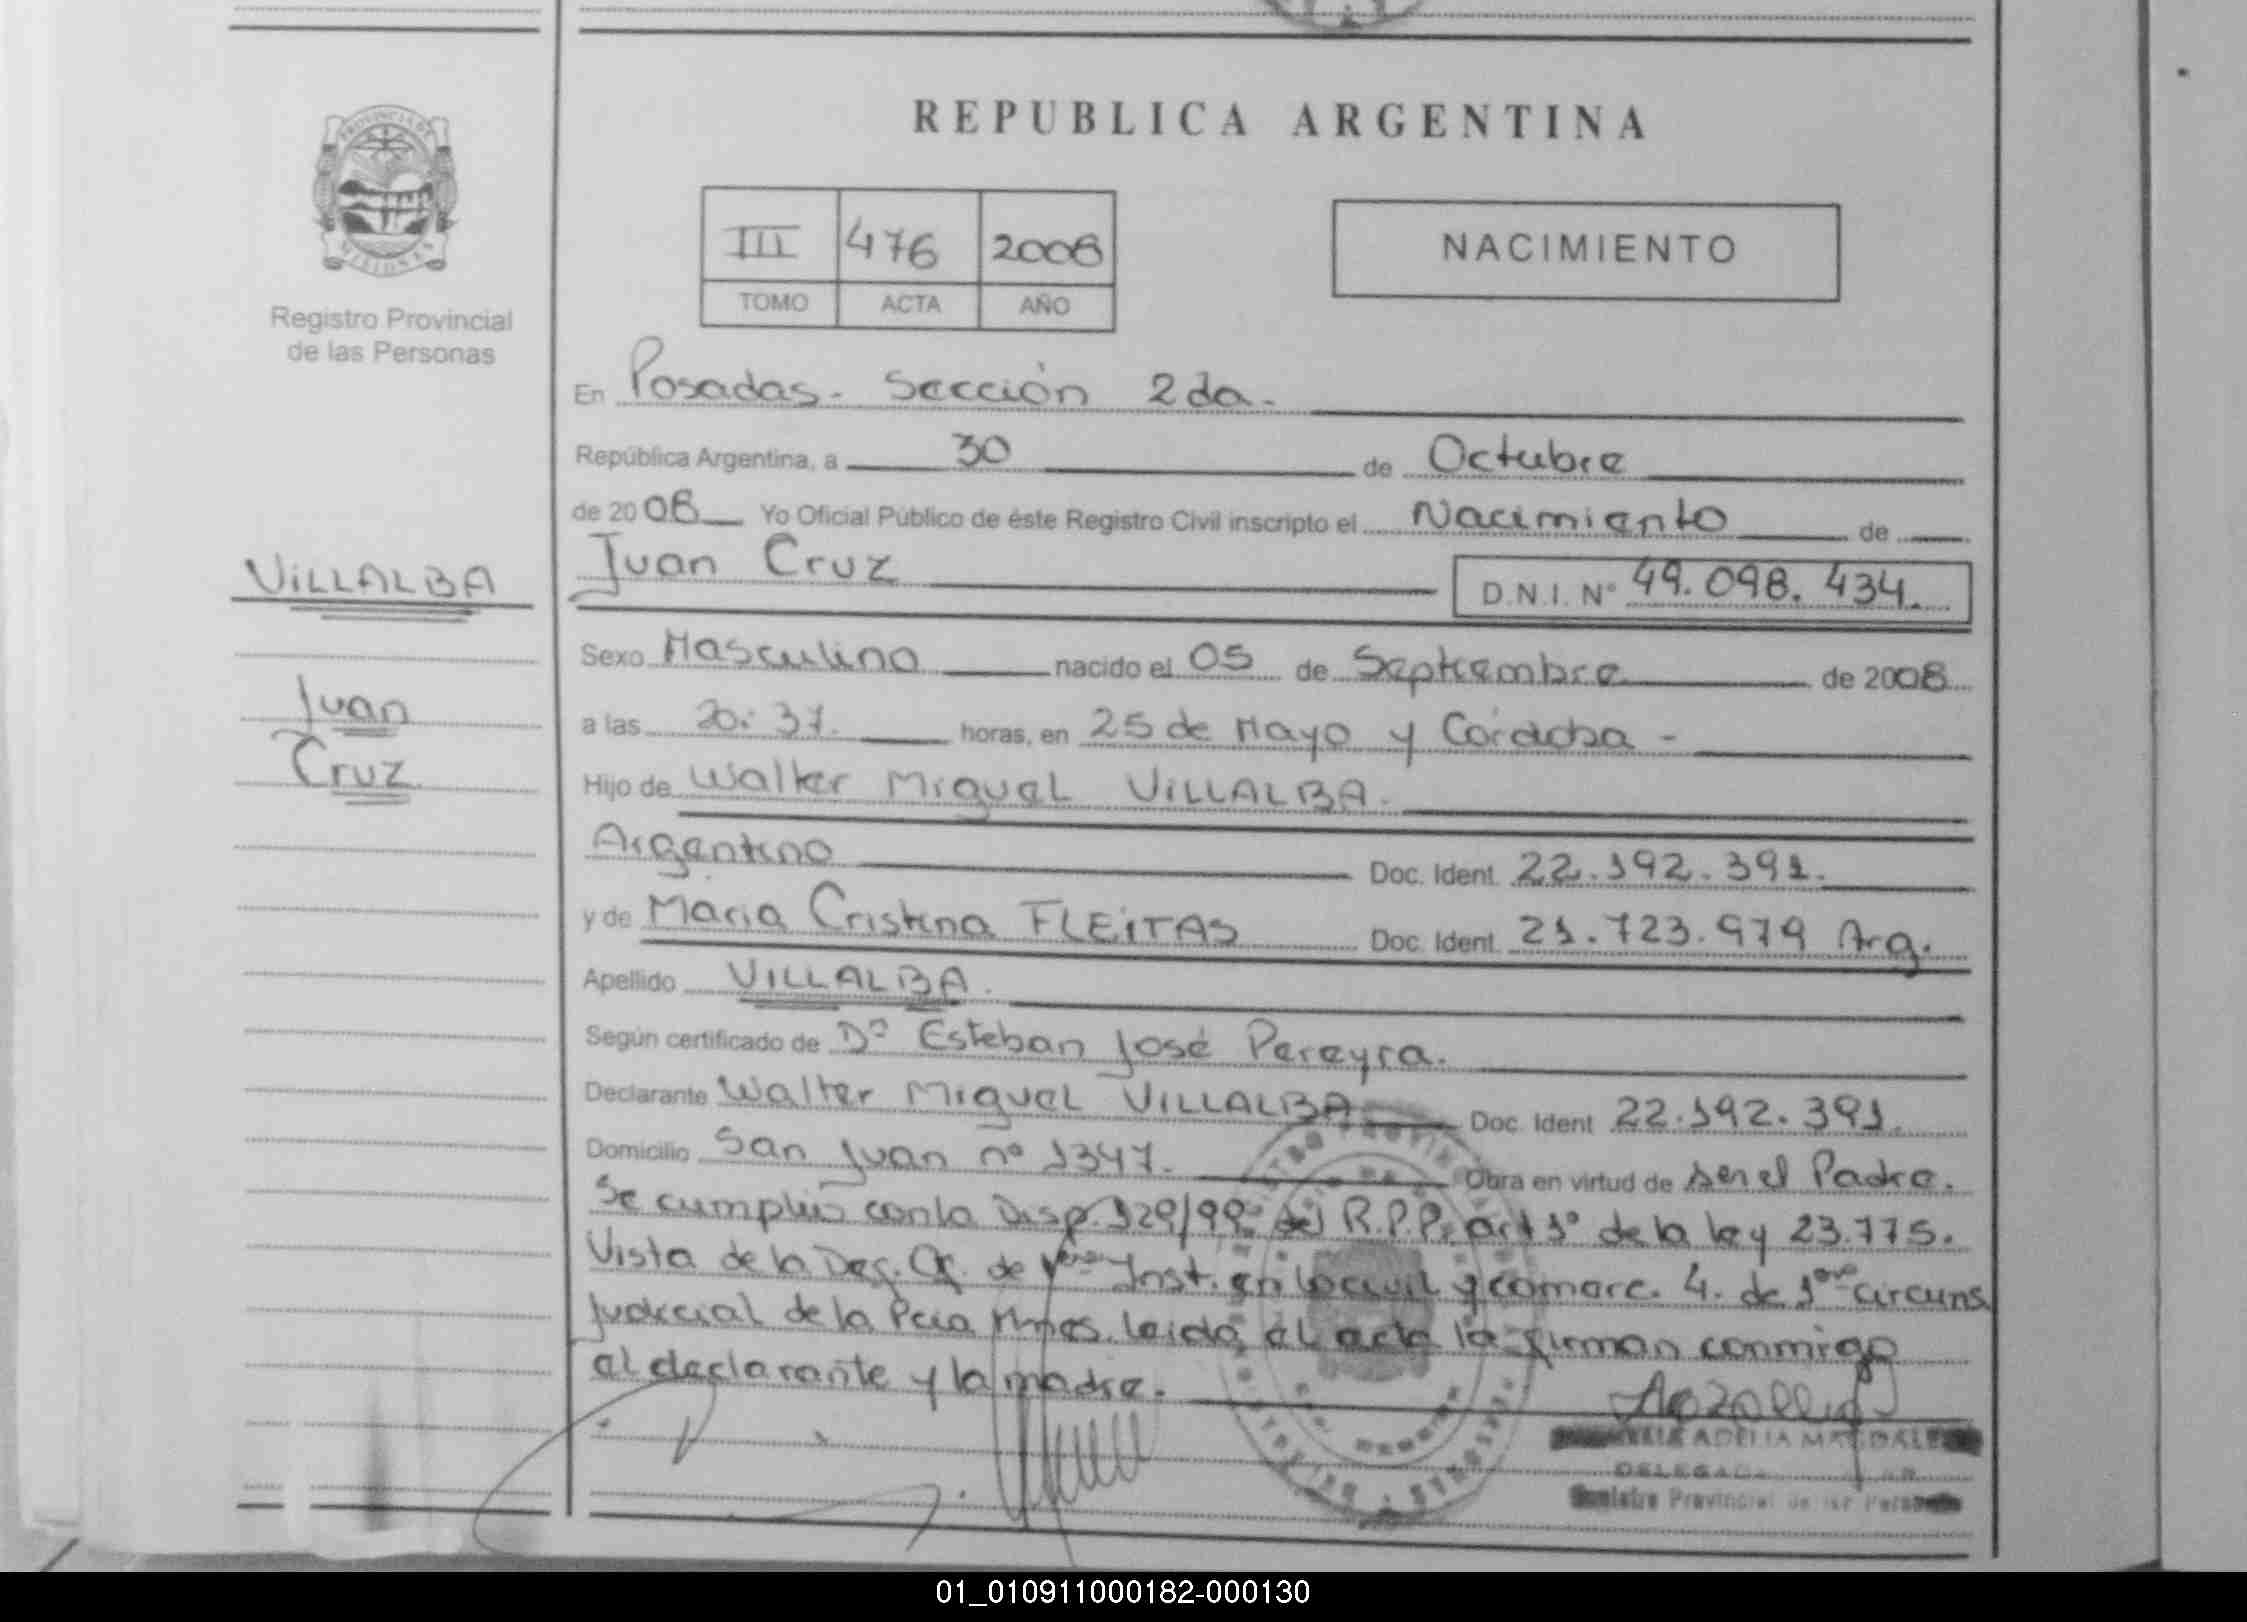 REPUBLICA ARGENTINA
PROVINCIA DE
MISIONES
Registro Provincial
de las Personas
III 476 2008
TOMO ACTA AÑO
NACIMIENTO
En Posadas. Sección 2da.
República Argentina, a 30 de Octubre
de 2008 Yo Oficial Público de éste Registro Civil inscripto el Nacimiento de
VILLALBA
Juan Cruz D.N.I. Nº 49.098.434.
Sexo Masculino nacido el 05 de Septiembre de 2008
Juan
a las 20:37. horas, en 25 de Mayo y Córdoba -
Cruz
Hijo de Walter Miguel VILLALBA.
Argentino Doc. Ident. 22.192.391.
y de Maria Cristina FLEITAS Doc. Ident. 21.723.979 Arg.
Apellido VILLALBA.
Según certificado de Dº Esteban José Pereyra.
Declarante Walter Miguel VILLALBA Doc. Ident 22.192.391.
Domicilio San Juan nº 1347. Obra en virtud de ser el Padre.
Se cumplió con la Disp. 129/99 del R.P.P. art 1º de la ley 23.775.
Vista de la Def. Of. de 1era Inst. en lo civil y comerc. 4. de 1era circuns
judicial de la Pcia Mnes. leida el acta la firman conmigo
el declarante y la madre.
ADELIA MAGDALE
DELEGADA
Registro Provincial de las Personas
01_010911000182-000130